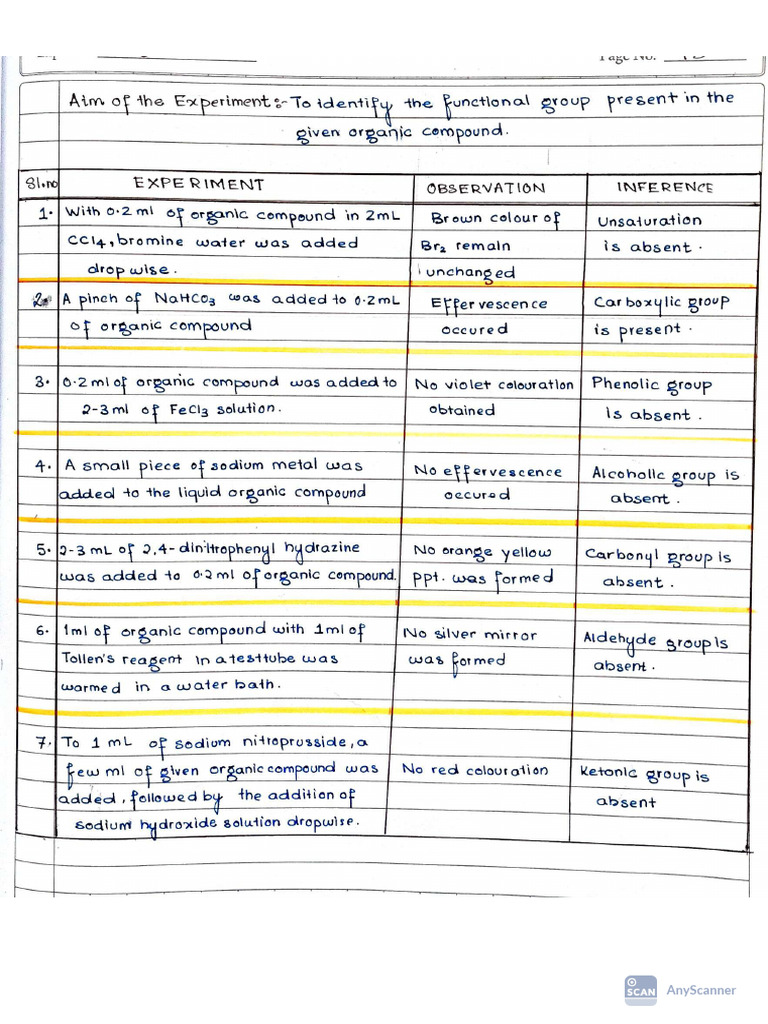 Page No.
Aim of the Experiment:- To identify the functional group present in the
given organic compound.
Sl.no EXPERIMENT OBSERVATION INFERENCE
1. With 0.2 ml of organic compound in 2mL Brown colour of Unsaturation
CCl4, bromine water was added Br2 remain is absent.
dropwise. unchanged
2. A pinch of NaHCO3 was added to 0.2mL Effervescence Carboxylic group
of organic compound occured is present.
3. 0.2ml of organic compound was added to No violet colouration Phenolic group
2-3 ml of FeCl3 solution. obtained is absent.
4. A small piece of sodium metal was No effervescence Alcoholic group is
added to the liquid organic compound occured absent.
5. 2-3 mL of 2,4-dinitrophenyl hydrazine No orange yellow Carbonyl group is
was added to 0.2 ml of organic compound. ppt. was formed absent.
6. 1ml of organic compound with 1ml of No silver mirror Aldehyde group is
Tollen's reagent in a testtube was was formed absent.
warmed in a water bath.
7. To 1 mL of sodium nitroprusside, a
few ml of given organic compound was No red colouration Ketonic group is
added, followed by the addition of absent
sodium hydroxide solution dropwise.
SCAN AnyScanner